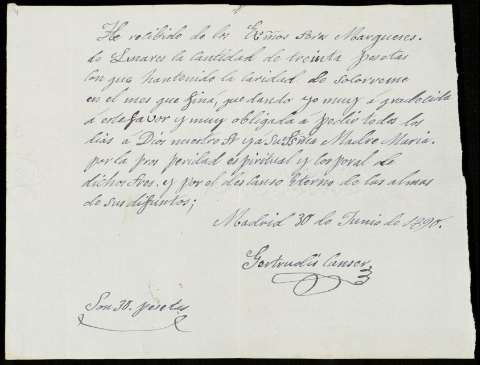 He recibido de los Exmos Sres Marqueses.
de Linares la cantidad de treinta pesetas
con que han tenido la caridad de socorrerme
en el mes que fina, quedando yo muy agradecida
á este favor y muy obligada a pedir todos los
dias á Dios nuestro Sr y a Su Sma Madre Maria.
por la pros peridad espiritual y corporal de
dichos Sres. y por el descanso Eterno de las almas
de sus difuntos;
Madrid 30 de Junio de 1890.
Gertrudis Canser
Son 30. pesetas